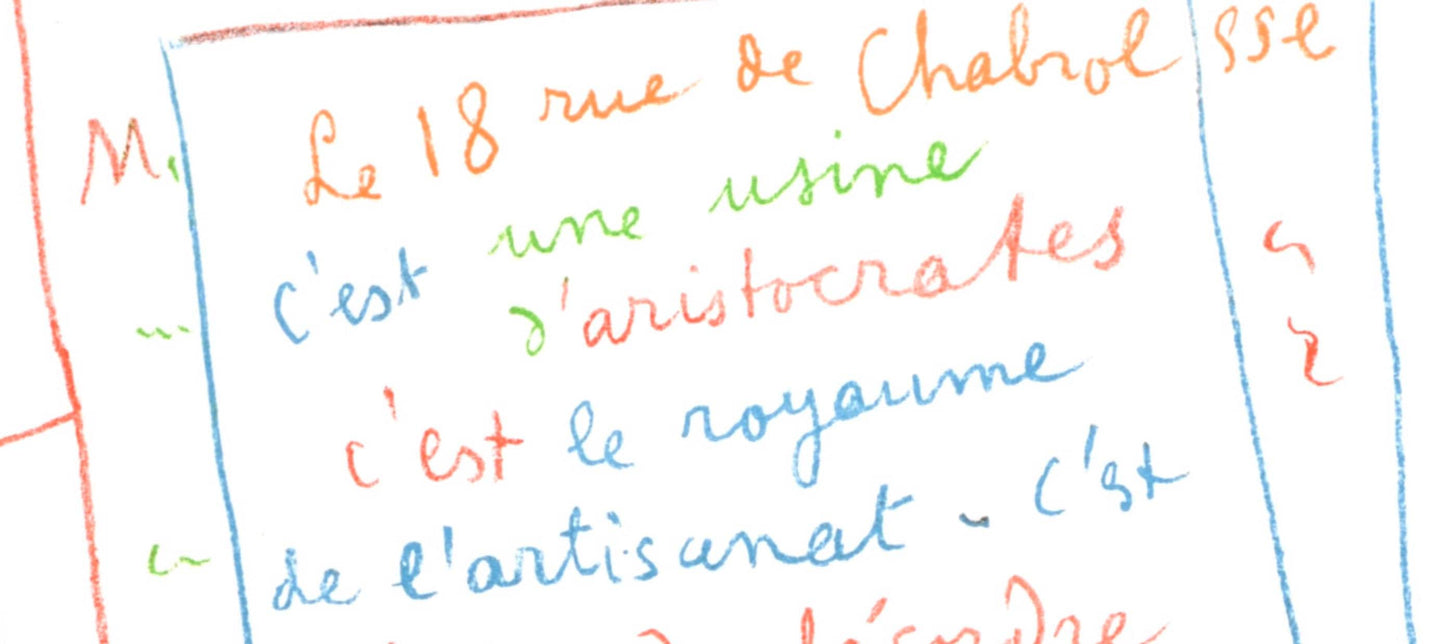 Le 18 rue de Chabrol
c'est une usine
d'aristocrates
c'est le royaume
de l'artisanat - c'est